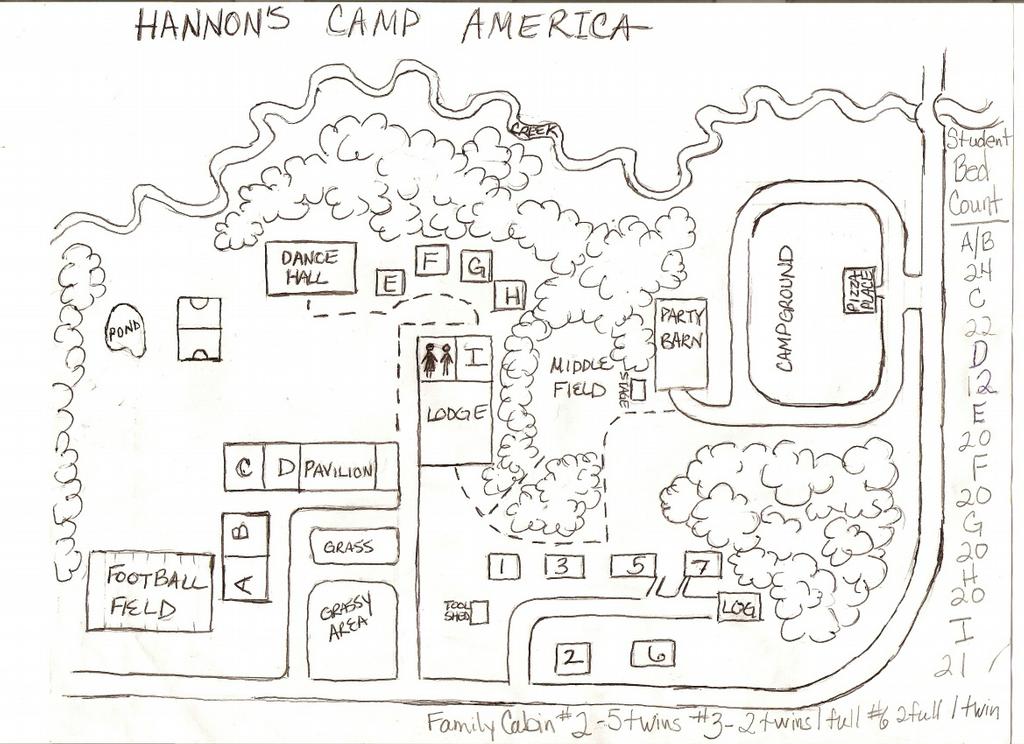 HANNON'S CAMP AMERICA
CREEK
Student
Bed
Count
A/B
24
C
22
D
12
E
20
F
20
G
20
H
20
I
21
DANCE
HALL
E
F
G
H
POND
I
LODGE
MIDDLE
FIELD
STAGE
PARTY
BARN
CAMPGROUND
PIZZA
PLACE
C
D
PAVILION
B
A
GRASS
GRASSY
AREA
FOOTBALL
FIELD
TOOL
SHED
1
3
5
7
LOG
2
6
Family Cabin #2 -5 twins #3 - 2 twins 1 full #6 2 full 1 twin